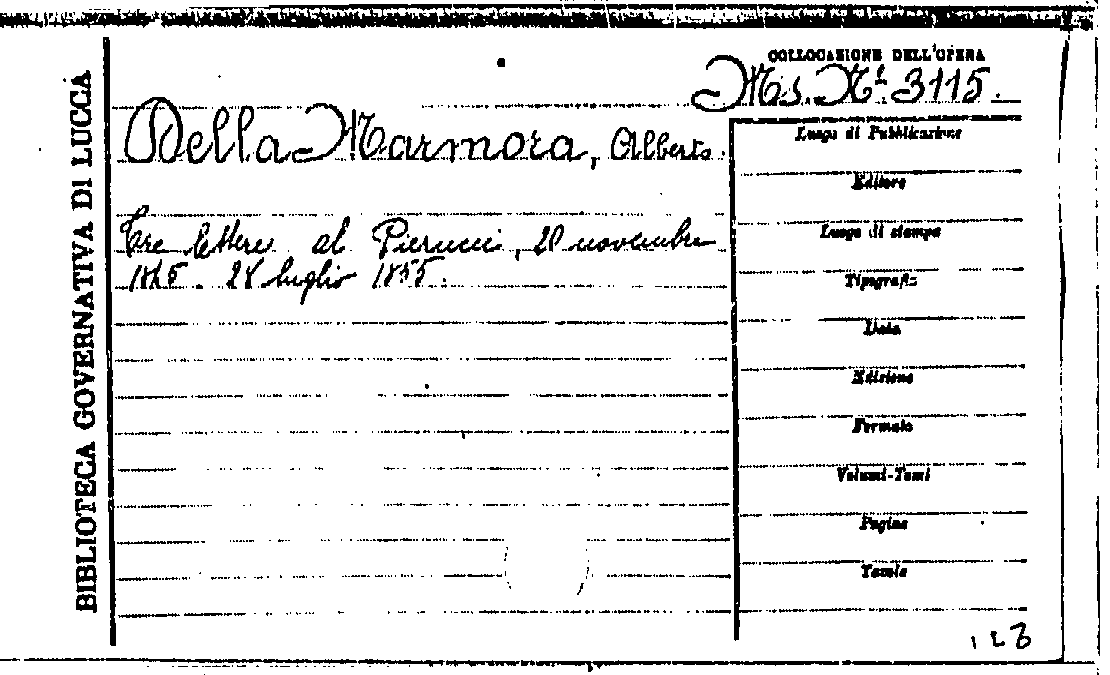 BIBLIOTECA GOVERNATIVA DI LUCCA
COLLOCAZIONE DELL'OPERA
Ms. Nº 3115.
Della Marmora, Alberto.
Tre lettere al Pierucci, 20 novembre
1845. 28 luglio 1855.
Luogo di Pubblicazione
Editore
Luogo di stampa
Tipografia
Data
Edizione
Formato
Volumi-Tomi
Pagine
Tavole